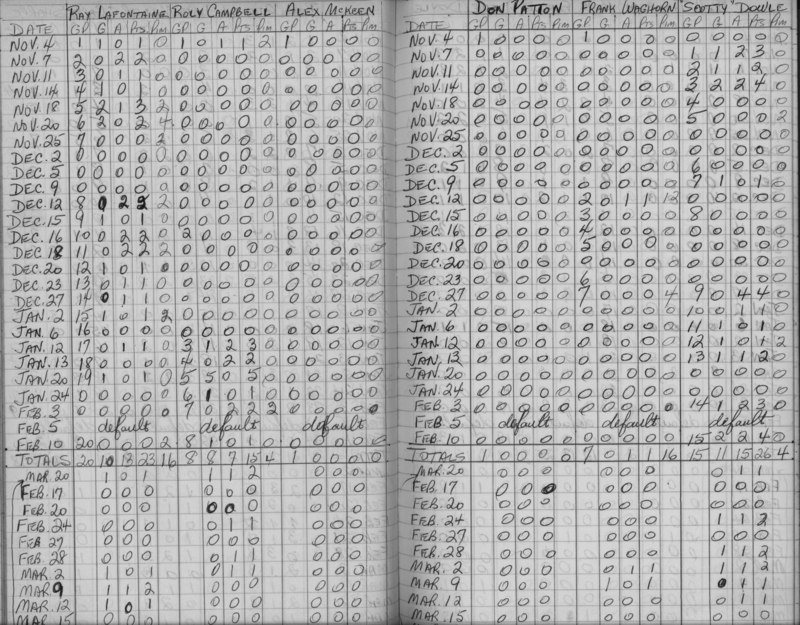 RAY LAFONTAINE ROLY CAMPBELL ALEX McKEEN
DATE GP G A Pts Pim GP G A Pts Pim GP G A Pts Pim
NOV. 4 1 1 0 1 0 1 0 1 1 2 1 0 0 0 0
NOV. 7 2 0 2 2 0 0 0 0 0 0 0 0 0 0 0
NOV. 11 3 0 1 1 0 0 0 0 0 0 0 0 0 0
NOV. 14 4 1 0 1 0 0 0 0 0 0 0 0 0 0
NOV. 18 5 2 1 3 2 0 0 0 0 0 0 0 0 0 0
NOV. 20 6 2 0 2 4 0 0 0 0 0 0 0 0 0
NOV. 25 7 0 0 0 2 0 0 0 0 0 0 0 0 0 0
DEC. 2 0 0 0 0 0 0 0 0 0 0 0 0 0 0 0
DEC. 5 0 0 0 0 0 0 0 0 0 0 0 0 0 0 0
DEC. 9 0 0 0 0 0 0 0 0 0 0 0 0 0 0 0
DEC. 12 8 0 2 2 0 0 0 0 0 0 0 0 0 0
DEC. 15 9 1 0 1 0 0 0 0 0 0 0 0 0 0 0
DEC. 16 10 0 2 2 0 2 0 0 0 0 0 0 0 0 0
DEC. 18 11 0 2 2 2 0 0 0 0 0 0 0 0 0
DEC. 20 12 1 0 1 0 0 0 0 0 0 0 0 0 0 0
DEC. 23 13 0 1 1 0 0 0 0 0 0 0 0 0 0 0
DEC. 27 14 0 1 1 0 0 0 0 0 0 0 0 0 0 0
JAN. 2 15 1 0 1 2 0 0 0 0 0 0 0 0 0 0
JAN. 6 16 0 0 0 0 0 0 0 0 0 0 0 0 0 0
JAN. 12 17 0 1 1 0 3 1 2 3 0 0 0 0 0 0
JAN. 13 18 0 0 0 0 4 0 2 2 0 0 0 0 0 0
JAN. 20 19 1 0 1 0 5 5 0 5 0 0 0 0 0 0
JAN. 24 0 0 0 0 0 6 1 0 1 0 0 0 0 0 0
FEB. 3 0 0 0 0 0 7 0 2 2 2 0 0 0 0 0
FEB. 5 default default default
FEB. 10 20 0 0 0 2 8 1 0 1 0 0 0 0 0
TOTALS 20 10 13 23 16 8 8 7 15 4 1 0 0 0 0
MAR. 20 1 0 1 1 1 2 0 0 0
FEB. 17 0 0 0 0 0 0 0 0 0
FEB. 20 0 0 0 0 0 0 0 0 0
FEB. 24 0 0 0 0 1 1 0 0 0
FEB. 27 0 0 0 0 0 0 0 0 0
FEB. 28 0 0 0 0 1 1 0 0 0
MAR. 2 1 0 1 0 1 1 0 0 0
MAR. 9 1 1 2 0 0 0 0 0 0
MAR. 12 1 0 1 0 0 0 0 0 0
MAR. 15 0 0 0 0 0 0
DON PATTON FRANK WAGHORN "SCOTTY" DOWLE
DATE GP G A Pts Pim GP G A Pts Pim GP G A Pts Pim
NOV. 4 1 0 0 0 0 1 0 0 0 0 0 0 0 0 0
NOV. 7 0 0 0 0 0 0 0 0 0 0 1 1 2 3 0
NOV. 11 0 0 0 0 0 0 0 0 0 0 2 1 1 2 0
NOV. 14 0 0 0 0 0 0 0 0 0 0 3 2 2 4 0
NOV. 18 0 0 0 0 0 0 0 0 0 0 4 0 0 0 0
NOV. 20 0 0 0 0 0 0 0 0 0 0 5 0 0 0 2
NOV. 25 0 0 0 0 0 0 0 0 0 0 0 0 0 0 0
DEC. 2 0 0 0 0 0 0 0 0 0 0 0 0 0 0 0
DEC. 5 0 0 0 0 0 0 0 0 0 0 6 0 0 0 0
DEC. 9 0 0 0 0 0 0 0 0 0 0 7 1 0 1 0
DEC. 12 0 0 0 0 0 2 0 1 1 12 0 0 0 0 0
DEC. 15 0 0 0 0 0 3 0 0 0 0 8 0 0 0 0
DEC. 16 0 0 0 0 0 4 0 0 0 0 0 0 0 0 0
DEC. 18 0 0 0 0 0 5 0 0 0 0 0 0 0 0 0
DEC. 20 0 0 0 0 0 0 0 0 0 0 0 0 0 0 0
DEC. 23 0 0 0 0 0 6 0 0 0 0 0 0 0 0 0
DEC. 27 0 0 0 0 0 7 0 0 0 4 9 0 4 4 0
JAN. 2 0 0 0 0 0 0 0 0 0 0 10 0 1 1
JAN. 6 0 0 0 0 0 0 0 0 0 0 11 1 0 1 0
JAN. 12 0 0 0 0 0 0 0 0 0 0 12 1 0 1 2
JAN. 13 0 0 0 0 0 0 0 0 0 0 13 1 1 2 0
JAN. 20 0 0 0 0 0 0 0 0 0 0 0 0 0 0 0
JAN. 24 0 0 0 0 0 0 0 0 0 0 0 0 0 0 0
FEB. 3 0 0 0 0 0 0 0 0 0 0 14 1 2 3 0
FEB. 5 default default default
FEB. 10 0 0 0 0 0 0 0 0 0 0 15 2 2 4 0
TOTALS 1 0 0 0 0 7 0 1 1 16 15 11 15 26 4
MAR. 20 0 0 0 0 0 0 0 1 1
FEB. 17 0 0 0 0 0 0 0 0 0
FEB. 20 0 0 0 0 0 0 0 0 0
FEB. 24 0 0 0 0 0 0 1 1 2
FEB. 27 0 0 0 0 0 0 0 0 0
FEB. 28 0 0 0 0 0 0 1 1 2
MAR. 2 0 0 0 0 1 1 1 1 2
MAR. 9 0 0 0 1 0 1 0 1 1
MAR. 12 0 0 0 0 0 0 0 1 1
MAR. 15 0 0 0 0 0 0 0 0 0